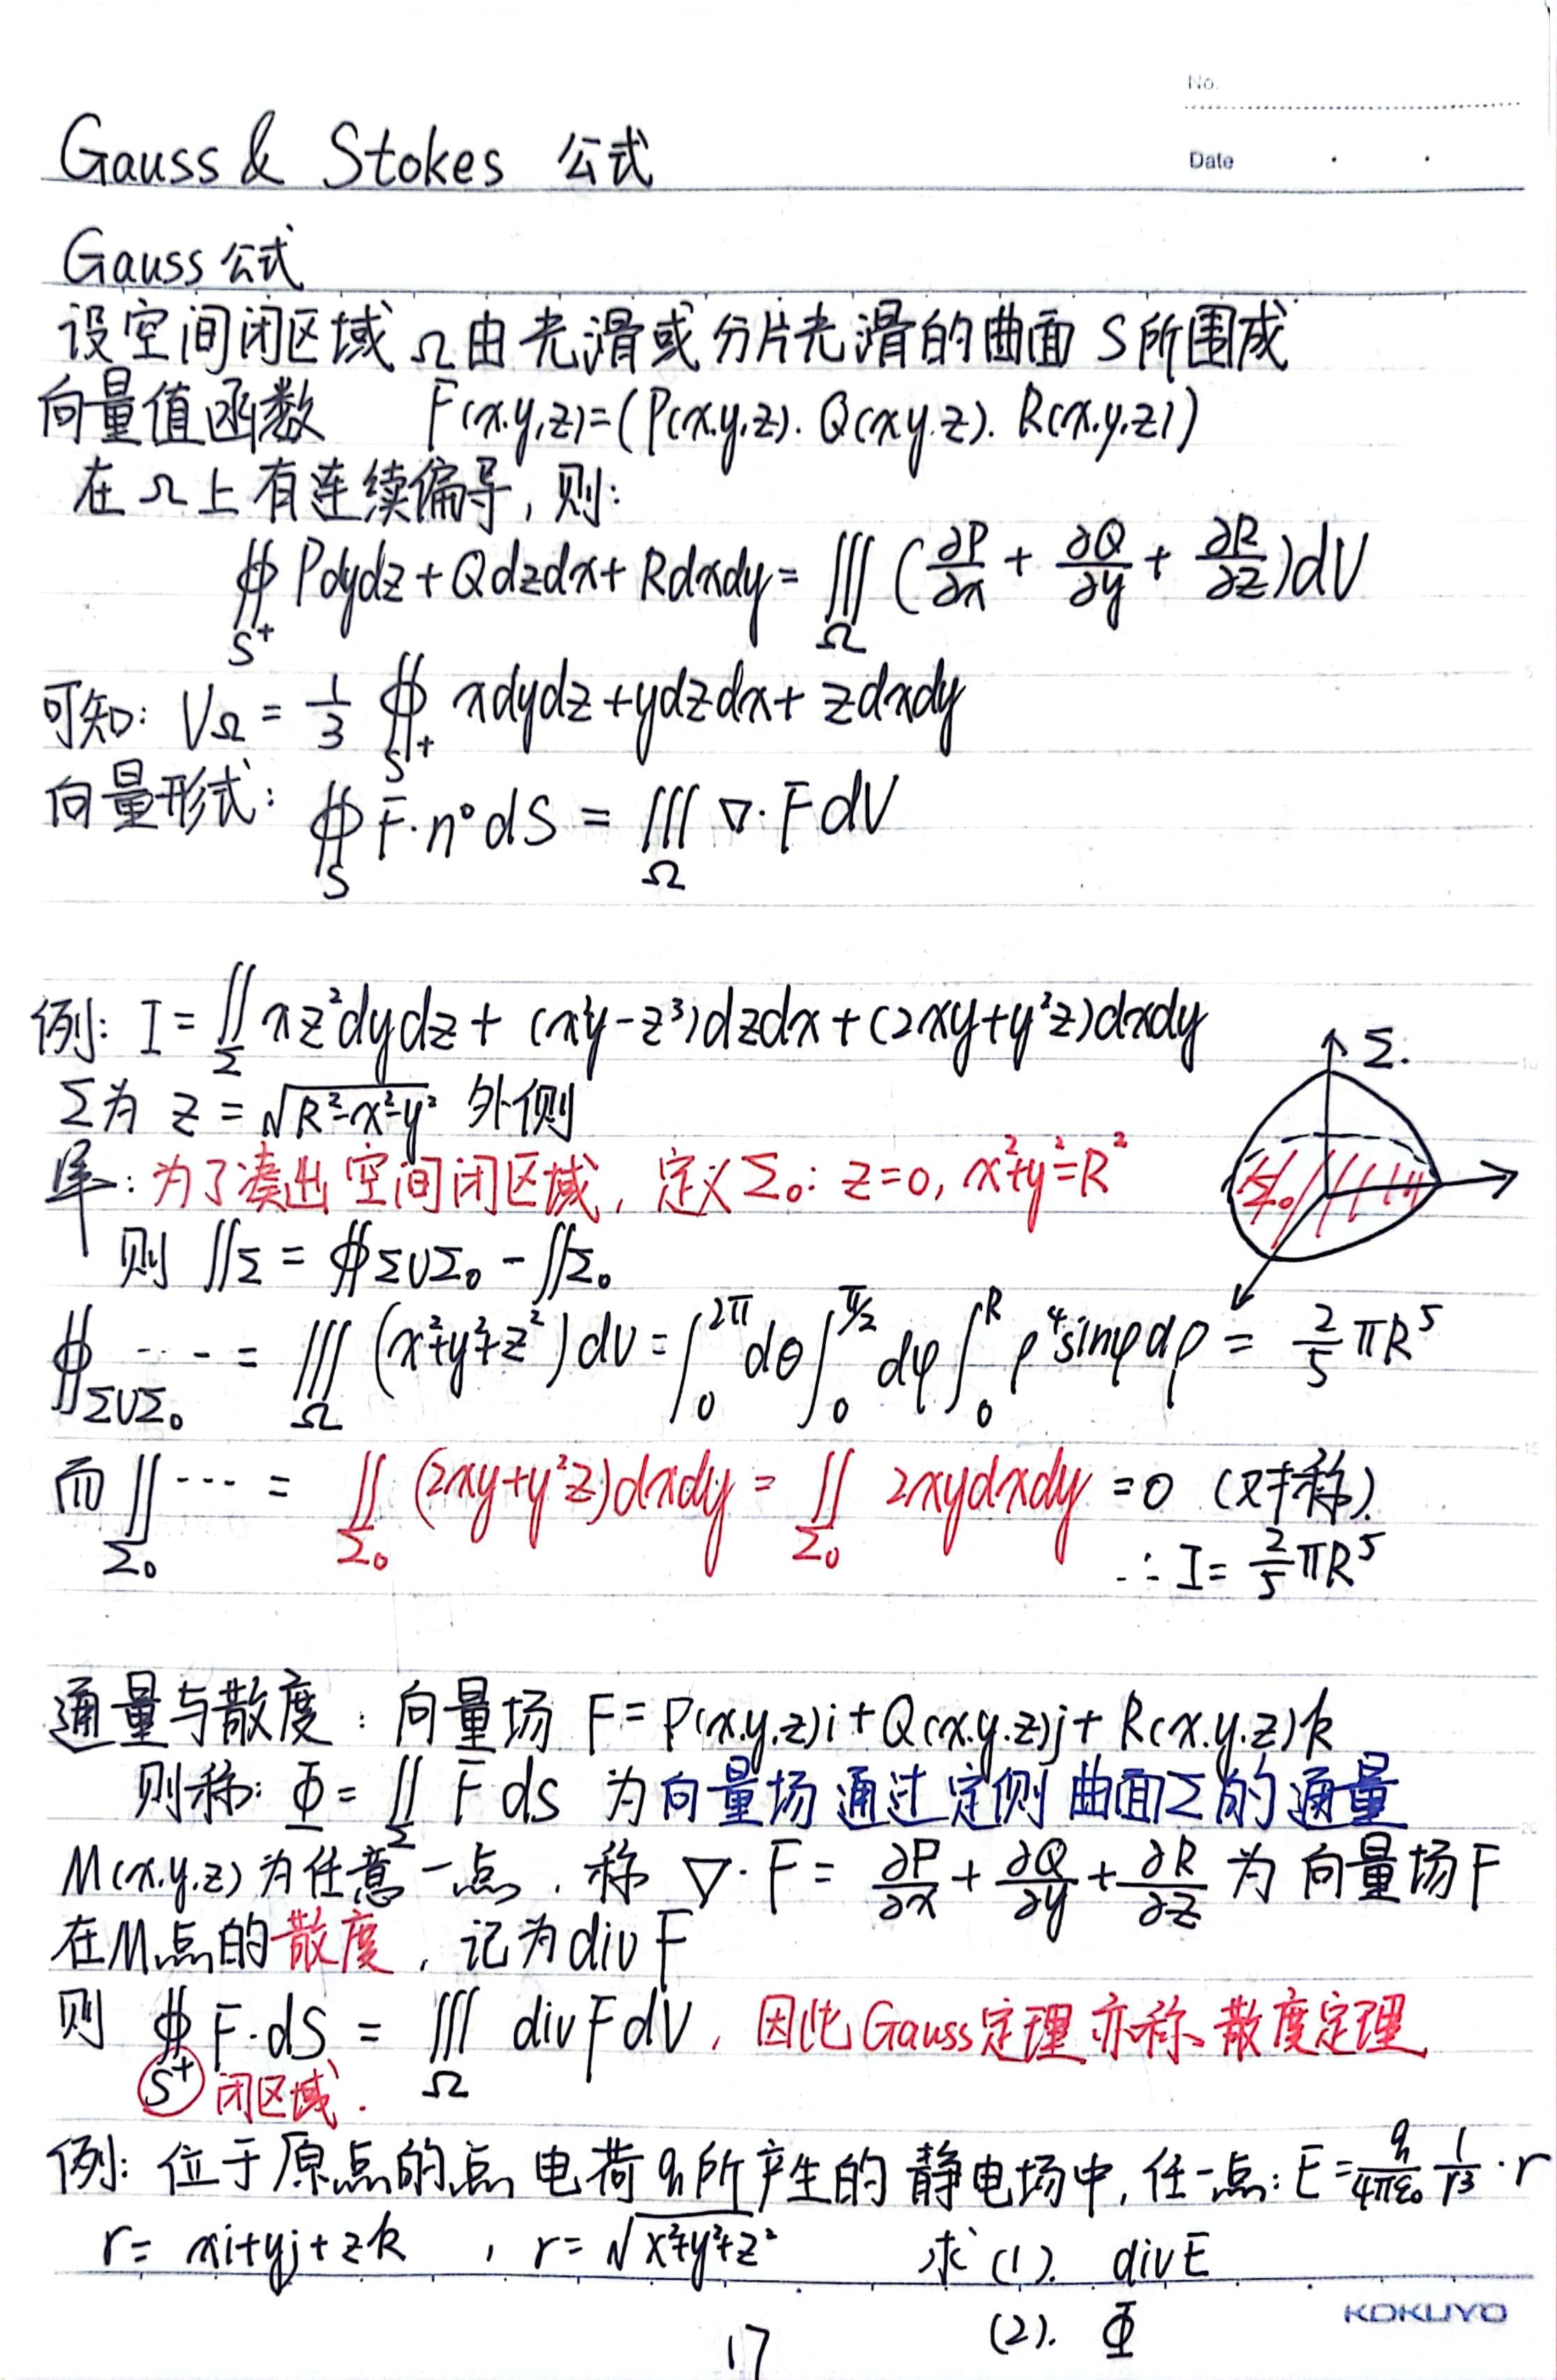 No.
Date
Gauss & Stokes 公式
Gauss 公式
设空间闭区域 Ω 由光滑或分片光滑的曲面 S 所围成
向量值函数 F(x,y,z)=(P(x,y,z), Q(x,y,z), R(x,y,z))
在 Ω 上有连续偏导, 则:
∯_{S⁺} Pdydz + Qdzdx + Rdxdy = ∭_Ω (∂P/∂x + ∂Q/∂y + ∂R/∂z)dV
可知: V_Ω = 1/3 ∯_{S⁺} xdydz + ydzdx + zdxdy
向量形式: ∯_S F·n° dS = ∭_Ω ∇·F dV
例: I = ∬_Σ xz²dydz + (x²y-z³)dzdx + (2xy+y²z)dxdy
Σ为 z = √(R²-x²-y²) 外侧
Σ.
解: 为了凑出空间闭区域, 定义Σ₀: z=0, x²+y²=R²
Σ₀
则 ∬_Σ = ∯_{Σ∪Σ₀} - ∬_{Σ₀}
∯_{Σ∪Σ₀} ··· = ∭_Ω (x²+y²+z²)dv = ∫₀^{2π} dθ ∫₀^{π/2} dφ ∫₀^R ρ⁴sinφdρ = 2/5 πR⁵
而 ∬_{Σ₀} ··· = ∬_{Σ₀} (2xy+y²z)dxdy = ∬_{Σ₀} 2xydxdy = 0 (对称).
∴ I = 2/5 πR⁵
通量与散度: 向量场 F = P(x,y,z)i + Q(x,y,z)j + R(x,y,z)k
则称: Φ = ∬_Σ F ds 为向量场通过定侧曲面Σ的通量
M(x,y,z) 为任意一点, 称 ∇·F = ∂P/∂x + ∂Q/∂y + ∂R/∂z 为向量场F
在M点的散度, 记为 div F
则 ∯_{S⁺} F·dS = ∭_Ω divF dV, 因此 Gauss定理亦称散度定理
闭区域.
例: 位于原点的点电荷 q 所产生的静电场中, 任一点: E = q/4πε₀ 1/r³ · r
r = xi+yj+zk , r = √(x²+y²+z²) 求 (1). divE
(2). Φ
KOKUYO
17